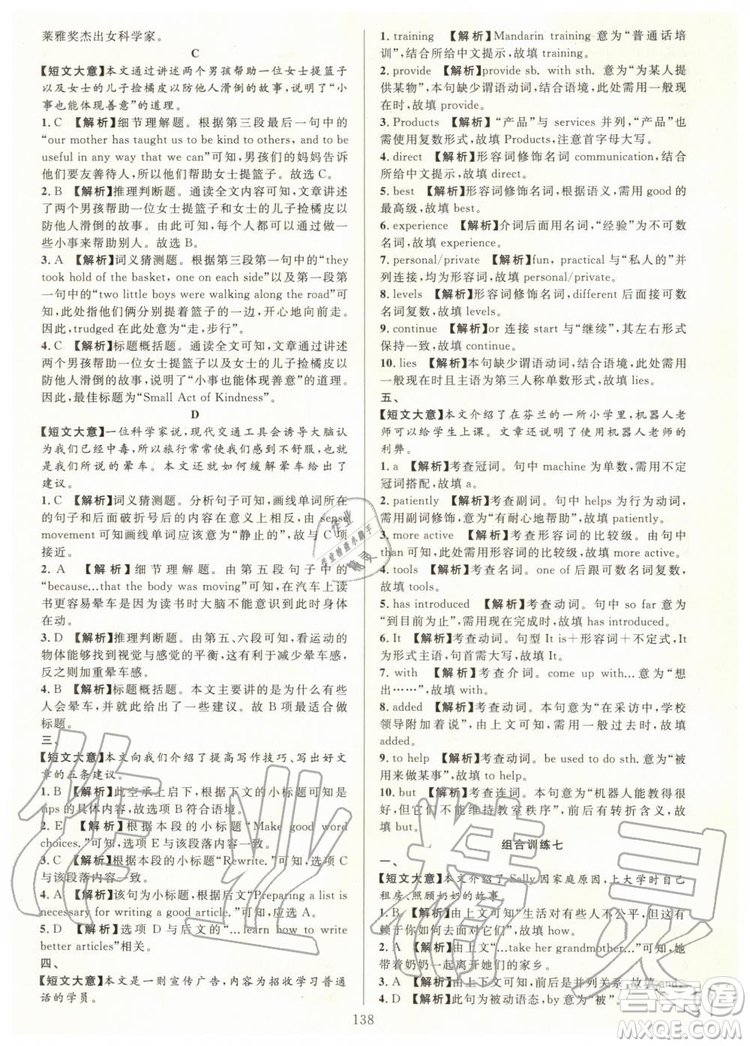 莱雅奖杰出女科学家。
C
【短文大意】本文通过讲述两个男孩帮助一位女士提篮子以及女士的儿子捡橘皮以防他人滑倒的故事，说明了“小事也能体现善意”的道理。
1. C 【解析】细节理解题。根据第三段最后一句中的
“our mother has taught us to be kind to others, and to be
useful in any way that we can”可知，男孩们的妈妈告诉
他们要友善待人，所以他们帮助别人。故选 C。
2. B 【解析】推理判断题。通读全文内容可知，文章讲述
了两个男孩帮助一位女士提篮子和女士的儿子捡橘皮以
防他人滑倒的故事。由此可知，这篇文章告诉我们做一
些小事来帮助别人。故选 B。
3. A 【解析】词义猜测题。根据第三段第一句中的“they
took hold of the basket, one on each side”以及第一段第
一句中的“two little boys were walking along the road”可
知，两个小男孩分别提着篮子的一边，开始沿着路行走。
因此，trudged 在此处意为“走，步行”。
4. C 【解析】标题概括题。通读全文可知，文章通过讲述
两个男孩帮助一位女士提篮子以及女士的儿子捡橘皮以
防他人滑倒的故事，说明了“小事也能体现善意”的道理。
因此，最佳标题为“Small Act of Kindness”。
D
【短文大意】一位科学家说，现代交通工具会诱导大脑认
为我们已经中毒，所以旅行常常使我们感到不舒服，也就
是我们常常所说的晕车。本文还谈论了如何缓解晕车的
建议。
1. C 【解析】词义猜测题。分析句子可知，画线单词所在
的句子和前面句子存在转折关系，由后面的 sense
movement 可知画线单词应为“静止的”。故与 C 项
接近。
2. A 【解析】细节理解题。根据第五段第一句子中的
“because...that the body was moving”可知，在汽车上读
书更易晕车是因为读书时大脑不能意识到身体在移动。
3. D 【解析】推理判断题。由第五、六段可知，看运动的
物体能够将视觉与感觉达到一致的平衡，会减弱晕车感，
反之则会加重晕车感。
4. B 【解析】标题概括题。通读文章可知，本文讲述了我
们为什么会晕车，以及如何阻止晕车。故 B 项最适合做
标题。
三、
【短文大意】本文向我们介绍了提高写作技巧、写出好文
章的五条建议。
1. B 【解析】此空承上启下，根据本文大意及下文中的
tips 可知，故选项 B 符合语境。
2. E 【解析】根据本段的小标题“Make good word
choices.”可知，选项 E 与该段落内容一致。
3. C 【解析】根据本段的小标题“Rewrite.”可知，选项 C
与该段内容一致。
4. A 【解析】该句为小标题，根据后文“Preparing a list is
necessary for writing a good article.”可知，选 A。
5. D 【解析】选项 D 与该段的小标题“learn how to write
better articles”相关。
四、
【短文大意】本文是一则宣传广告，内容为招收学习普通
话的学员。
1. training 【解析】Mandarin training 意为“普通话培
训”，结合所给中文可知，故填 training。
2. provide 【解析】provide sb. with sth. 意为“为某人提
供某物”，本句缺少谓语动词，结合语境可知，需用一般现
在时，故填 provide。
3. Products 【解析】“产品”与 services 并列，“产品”也应
用复数形式，故填 Products，注意首字母大写。
4. direct 【解析】形容词修饰名词 communication，结合
所给中文可知，故填 direct。
5. best 【解析】形容词修饰名词，根据语义，需用 good 的
最高级，故填 best。
6. experience 【解析】介词后面用名词，“经验”为不可数
名词，故填 experience。
7. personal/private 【解析】fun, practical 与“私人的”并
列连接，均为形容词，故填 personal/private。
8. levels 【解析】形容词修饰名词，different 后面应接可
数名词复数，故填 levels。
9. continue 【解析】or 连接 start 与“继续”，其左右形式
保持一致，故填 continue。
10. lies 【解析】本句缺少谓语动词，结合语境可知，需用
一般现在时且主语为第三人称单数形式，故填 lies。
五、
【短文大意】本文介绍了在芬兰的一所小学里，机器人老
师可以给学生上课。文章说明了使用机器人老师的
利弊。
1. a 【解析】考查冠词。句中 machine 为单数，需用不定
冠词搭配，故填 a。
2. patiently 【解析】考查副词。句中 helps 为行为动词，
需用副词修饰，意为“有耐心地帮助”，故填 patiently。
3. more active 【解析】考查形容词的比较级。根据语境
可知，需用 active 的比较级，故填 more active。
4. tools 【解析】考查名词。one of 后跟可数名词复数，故
填 tools。
5. has introduced 【解析】考查动词。句中 so far 意为
“到目前为止”，需用现在完成时，主语为第三人称单数形
式，故填 has introduced。
6. It 【解析】考查动词。句型 It is＋形容词＋不定式，It
为形式主语，句首需大写，故填 It。
7. with 【解析】考查动词。come up with...意为“想
出……”，故填 with。
8. added 【解析】考查动词。句意为“在采访中，学校
领导附加说”。根据语境可知，需用一般过去时，故
填 added。
9. to help 【解析】考查动词。be used to do sth. 意为“被
用来做某事”，故填 to help。
10. but 【解析】考查连词。句意为“机器人能教得很
好，但它们不能维持教室秩序”，前后构成转折关系，故
填 but。
组合训练七
一、
【短文大意】本文介绍了Sally因家庭原因，上大学时自己
租房、照顾奶奶的故事。
1. B 【解析】由上文可知“生活对有些人也不公平，但这
赖于你如何去面对它们”。故填 how。
2. A 【解析】由上文“...take her grandmother...”可知，她
带着奶奶一起离开她们的家乡。
3. A 【解析】由上下文可知，前后是并列关系，故填 and。
4. D 【解析】此句为被动语态，意为“被”。
138